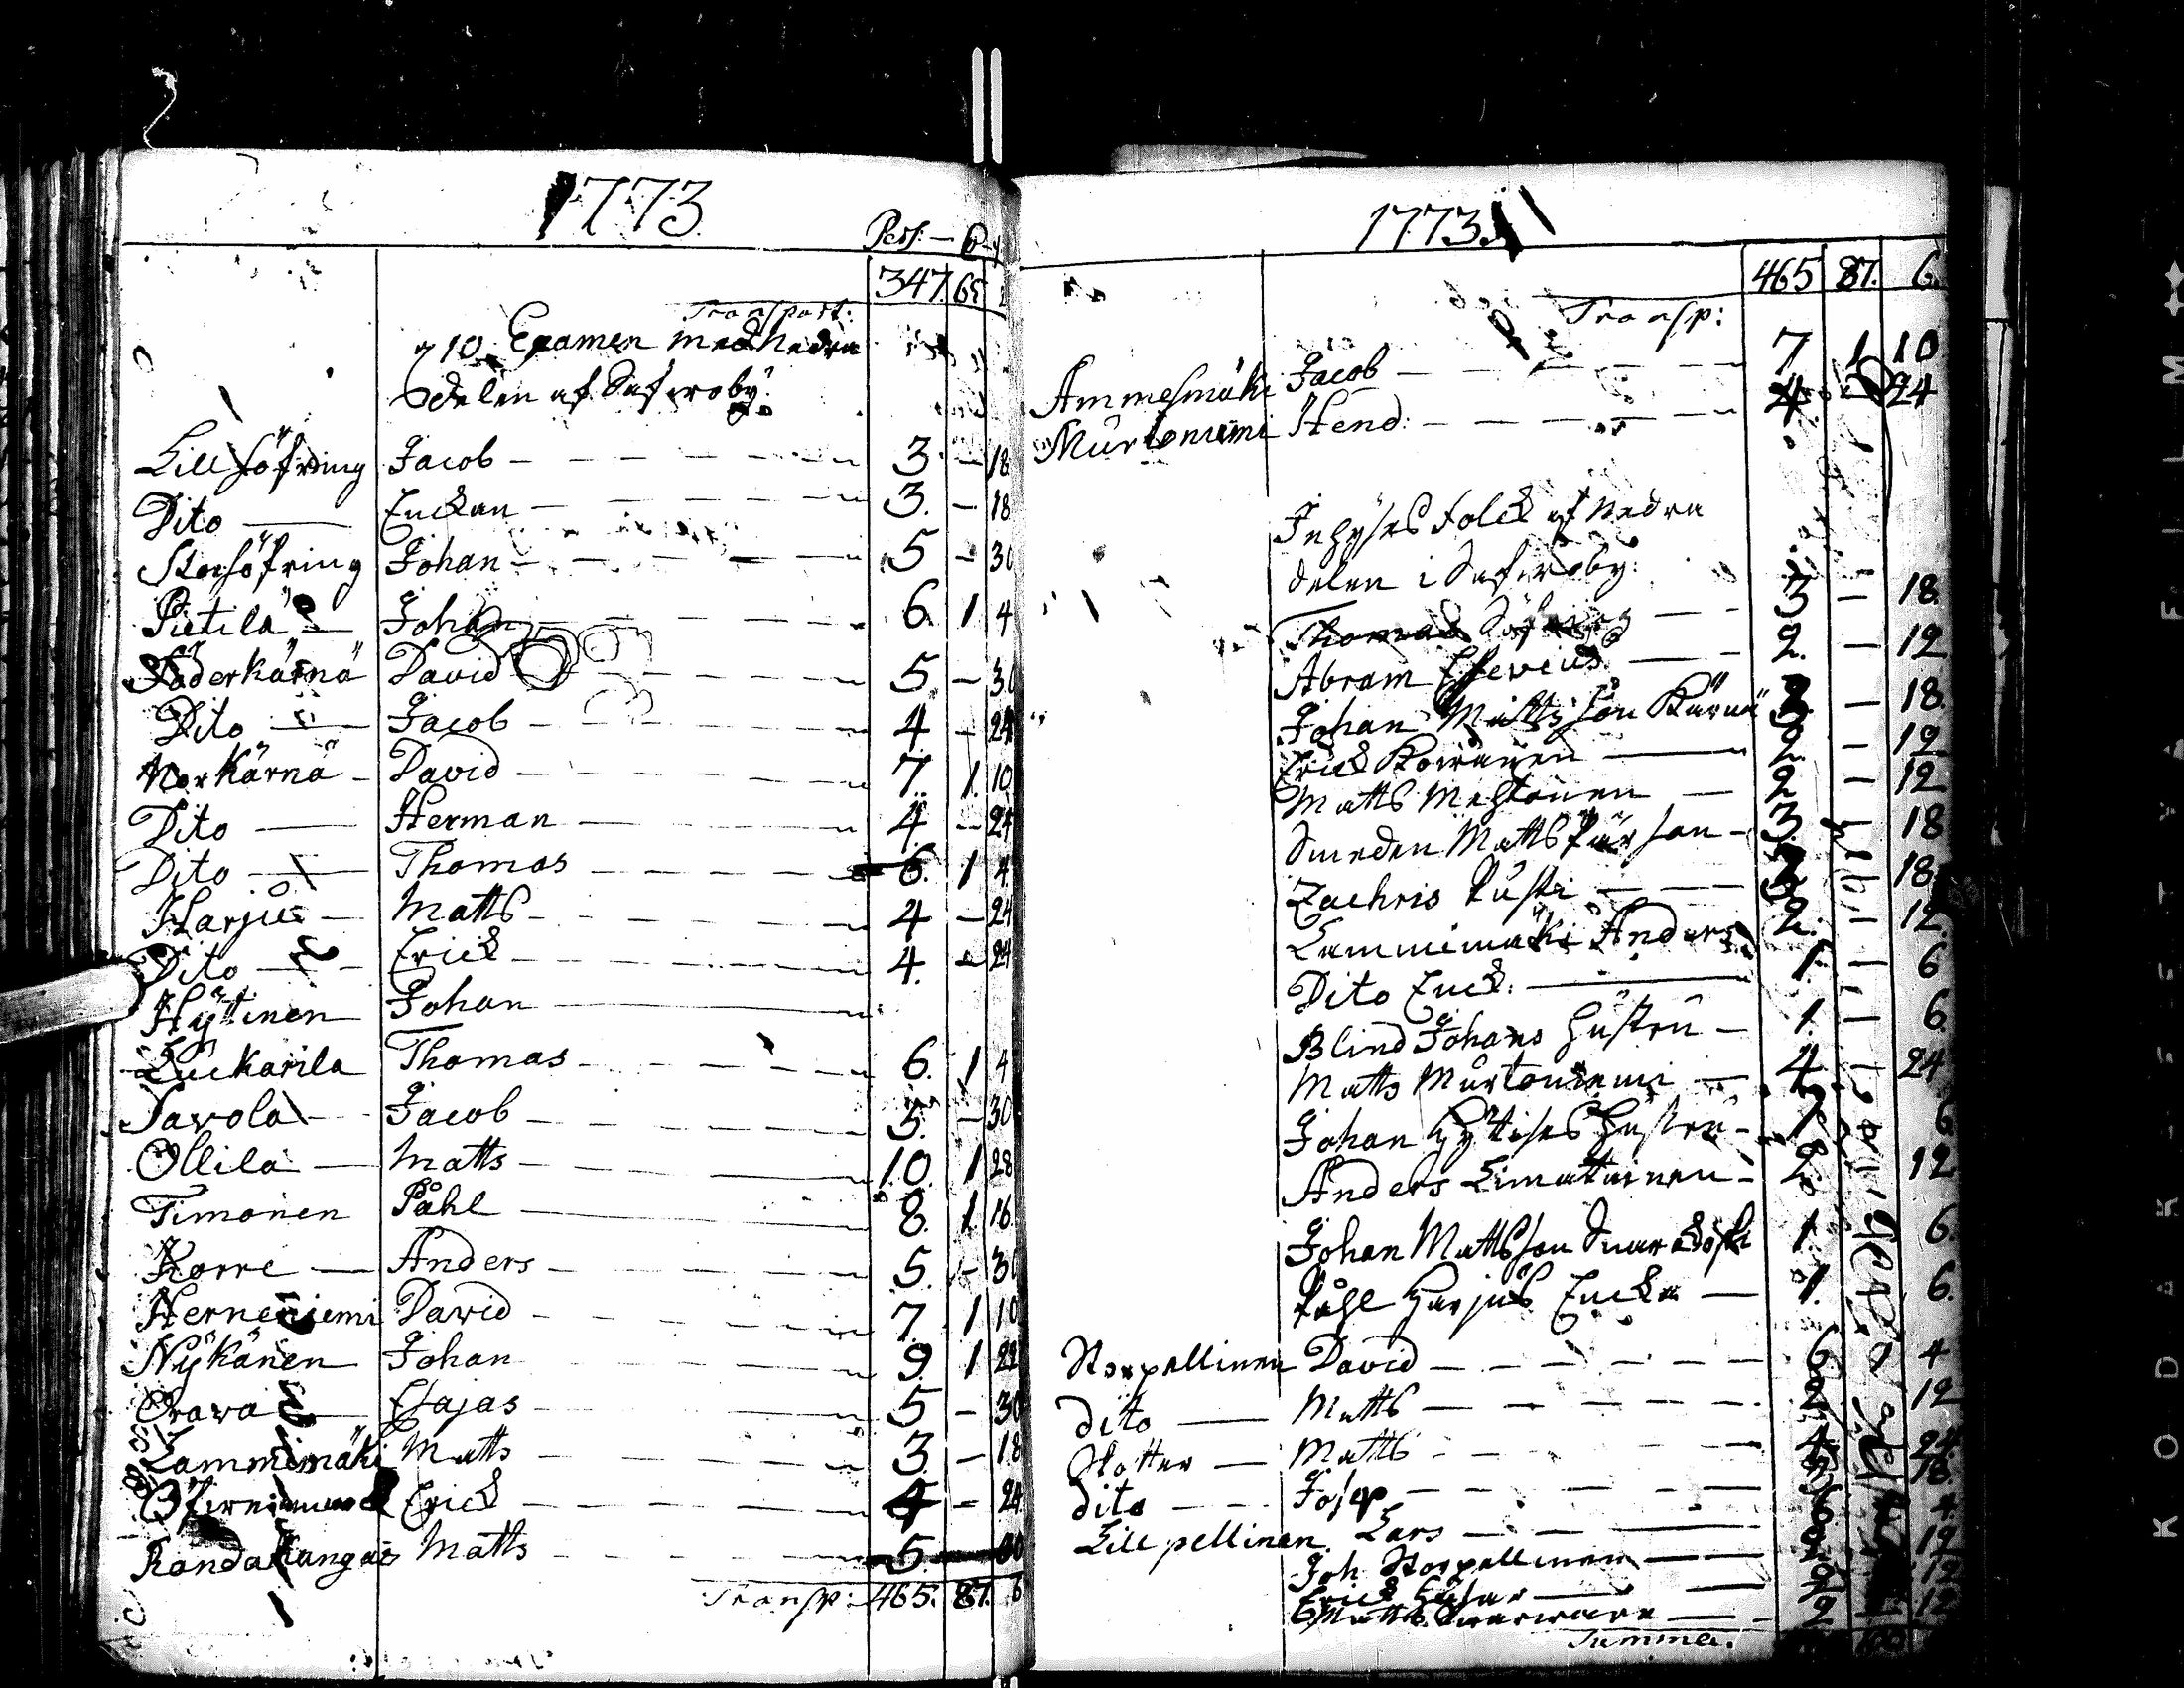 1773
Pers: —
347. 65
Transport:
10. Examen med Nedra
delen af Saferoby.
Lillsöfring Jacob — 3. — 18
Dito — Enckan — 3. — 18
Storsöfring Johan — 5 — 30
Pietilä — Johan — 6. 1 4
Söderkärnä David — 5. — 30
Dito — Jacob — 4 — 24
Norkärnä — David — 7. 1. 10
Dito — Herman — 4 — 24
Dito — Thomas — 6. 1 4
Harju — Matts — 4 — 24
Dito — Erick — 4. — 24
Hÿtinen Johan —
Luckarila Thomas — 6. 1 4
Savola — Jacob — 5. — 30
Ollila — Matts — 10. 1 28
Timonen Påhl — 8. 1 16
Korre — Anders — 5. — 30
Herneniemi David — 7. 1 10
Nÿkänen Johan — 9. 1 22
Orava — Esajas — 5 — 30
Lammimäki Matts — 3. — 18
Erick — 4 — 24
Randakangas Matts — 5. — 30
Transp: 465. 87. 6
1773.
465 87. 6.
Transp:
Ammesmäki Jacob — 7 1 10
Murtoniemi Hend: — 4. — 24
Inhyses Folck af Nedra
delen i Saferoby.
Thomas Söfring — 3 — 18.
Abram — 2. — 12
Johan Mattsson Kärnä 3 — 18.
Erick — 2 — 12
Matts — 2 — 12
Smeden Matts Pärson — 3. — 18
Zachris — 3 — 18.
Lammimäki Anders 2. — 12.
Dito Enck: — 1. — 6
Blind Johans Hustru — 1. — 6.
Matts Murtoniemi — 4. — 24
Johan Hÿtises Hustru — 1 6
Anders Limatainen — 2. 12
Johan Mattsson 1 6.
Påhl Harjus Encka — 1. 6.
Storpellinen David — 6 4
dito — Matts — 2 12
Matts — 4 24
dito — Josep — 3 18
Lillpellinen Lars — 6 4
Joh Storpellinen — 2 12
Erick — 2 12
Matts — 2 12
Summa.
KODAK SAFETY FILM